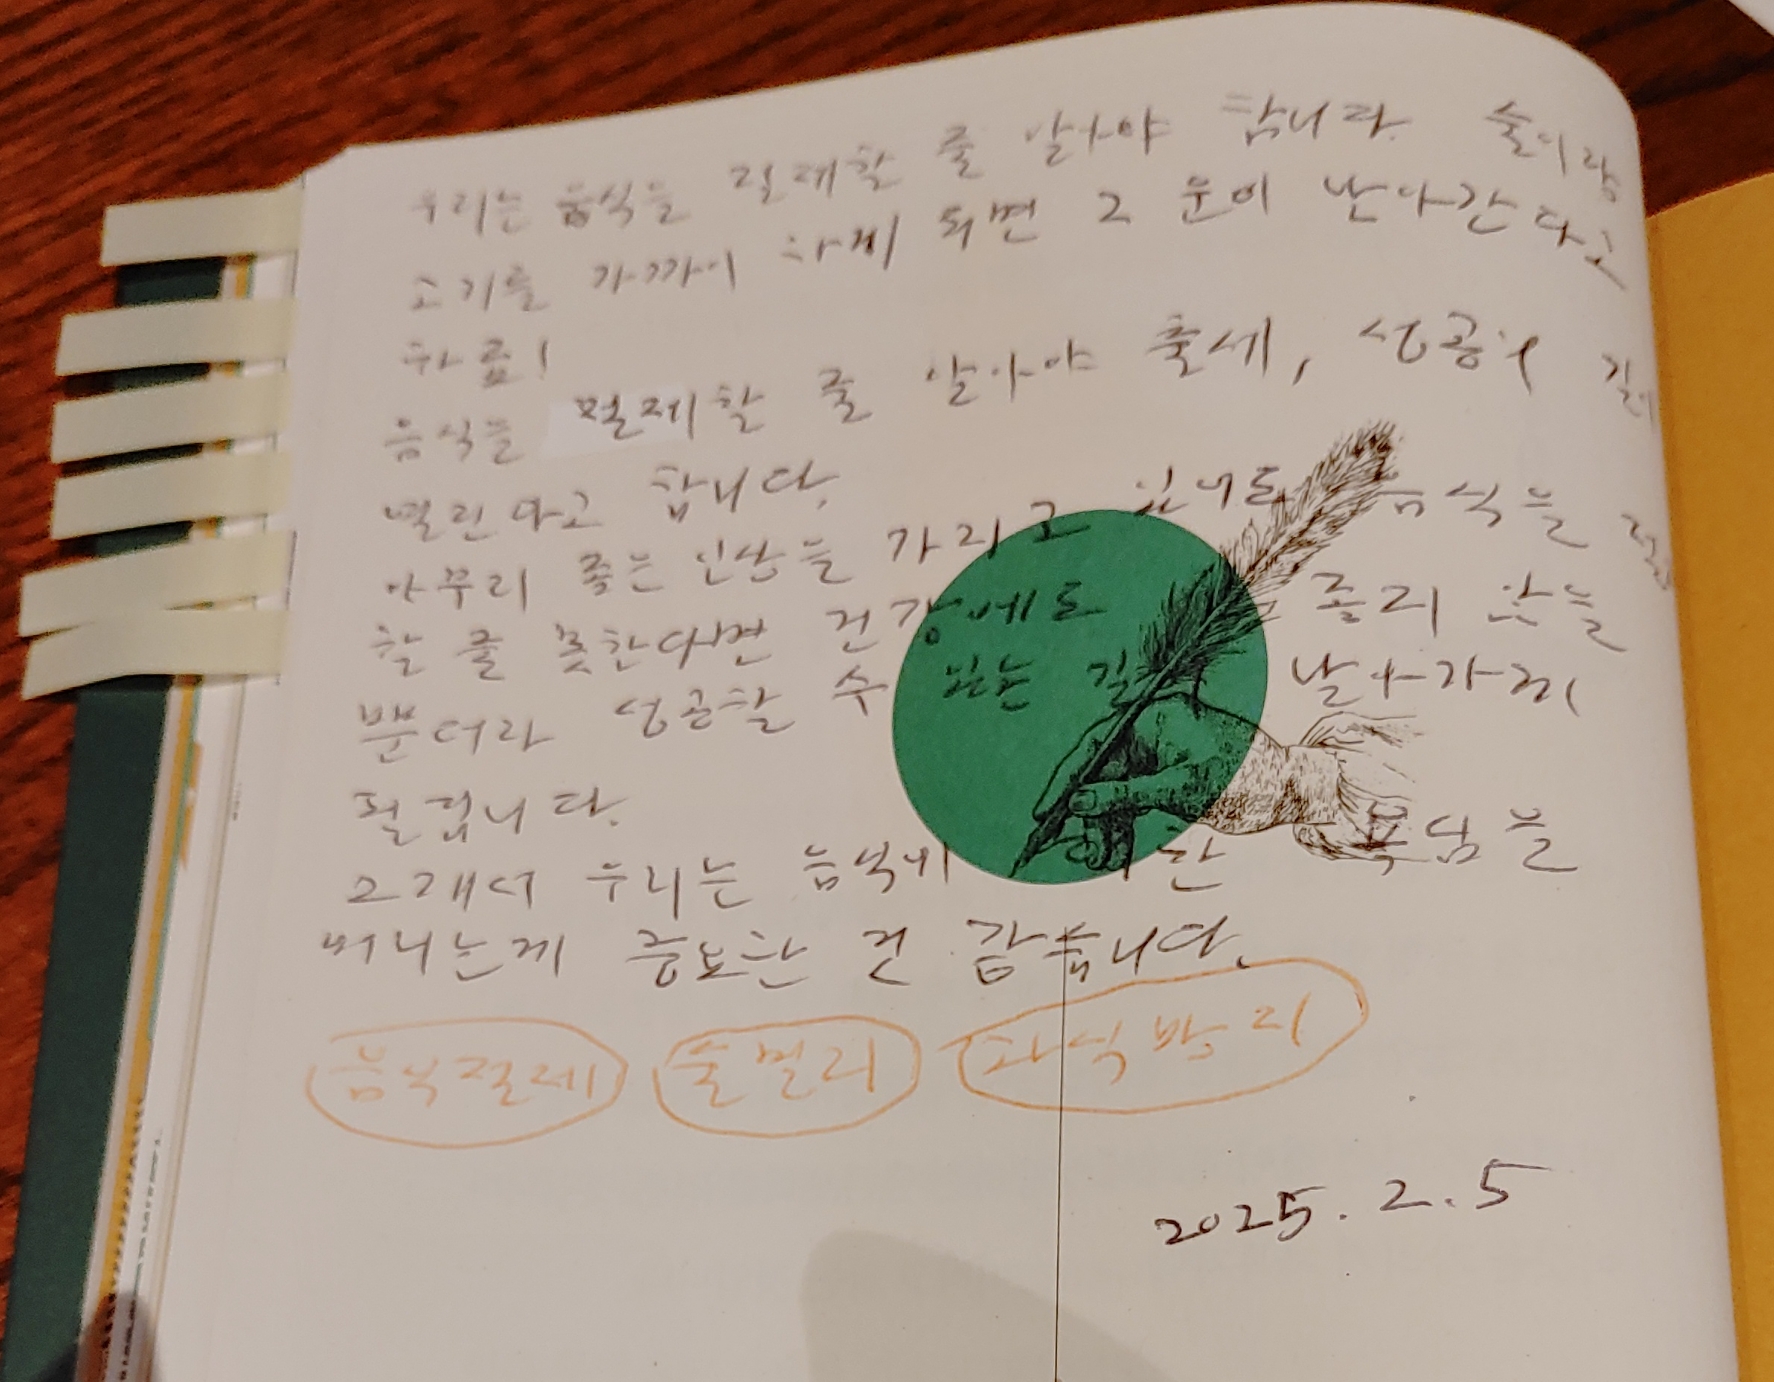 우리는 음식을 절제할 줄 알아야 합니다. 술이랑
고기를 가까이 하게 되면 그 운이 날아간다고
하죠!
음식을 절제할 줄 알아야 출세, 성공의 길이
열린다고 합니다.
아무리 좋은 인상을 가리고 있어도 음식을
할 줄 못한다면 건강에도 졸리 않을
뿐더러 성공할 수 있는 길 날아가게
될겁니다.
그래서 우리는 음식에 대한 욕심을
버리는게 중요한 건 같습니다.
음식절제 술멀리 과식방지
2025. 2. 5